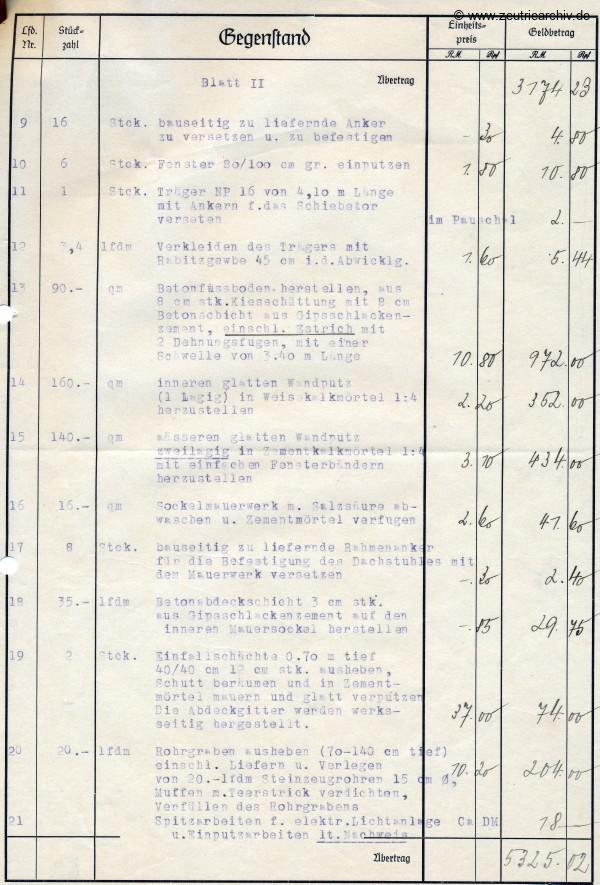 © www.zeutriearchiv.de
Lfd. Nr. Stück- zahl Gegenstand Einheits- preis Geldbetrag
R.M. Rpf R.M. Rpf
Blatt II Übertrag 3174 23
9 16 Stck. bauseitig zu liefernde Anker
zu versetzen u. zu befestigen -. 30 4. 80
10 6 Stck. Fenster 80/100 cm gr. einputzen 1. 80 10. 80
11 1 Stck. Träger NP 16 von 4,10 m Länge
mit Ankern f.das Schiebetor
verseten im Pauschal 2. —
12 3,4 lfdm Verkleiden des Trägers mit
Rabitzgewbe 45 cm i.d.Abwicklg. 1. 60 5. 44
13 90.- qm Betonfussboden herstellen, aus
8 cm stk.Kiesschüttung mit 8 cm
Betonschicht aus Gipsschlacken-
zement, einschl. Estrich mit
2 Dehnungsfugen, mit einer
Schwelle von 3.40 m Länge 10. 80 972. 00
14 160.- qm inneren glatten Wandputz
(1 Lagig) in Weisskalkmörtel 1:4
herzustellen 2. 20 352. 00
15 140.- qm äusseren glatten Wandputz
zweilagig in Zementkalkmörtel 1:4
mit einfachen Fensterbändern
herzustellen 3. 10 434. 00
16 16.- qm Sockelmauerwerk m. Salzsäure ab-
waschen u. Zementmörtel verfugen 2. 60 41. 60
17 8 Stck. bauseitig zu liefernde Rahmenanker
für die Befestigung des Dachstuhles mit
dem Mauerwerk versetzen -. 30 2. 40
18 35.- lfdm Betonabdeckschicht 3 cm stk.
aus Gipsschlackenzement auf den
inneren Mauersockel herstellen -. 85 29. 75
19 2 Stck. Einfallschächte 0.70 m tief
40/40 cm 12 cm stk. ausheben,
Schutt beräumen und in Zement-
mörtel mauern und glatt verputzen
Die Abdeckgitter werden werks-
seitig hergestellt. 37. 00 74. 00
20 20.- lfdm Rohrgraben ausheben (70-140 cm tief)
einschl. Liefern u. Verlegen
von 20.-lfdm Steinzeugrohren 15 cm Ø, 10. 20 204. 00
Muffen m.Teerstrick verdichten,
Verfüllen des Rohrgrabens
21 Spitzarbeiten f. elektr.Lichtanlage Ca DM 18 —
u.Einputzarbeiten lt.Nachweis
Übertrag 5325. 02